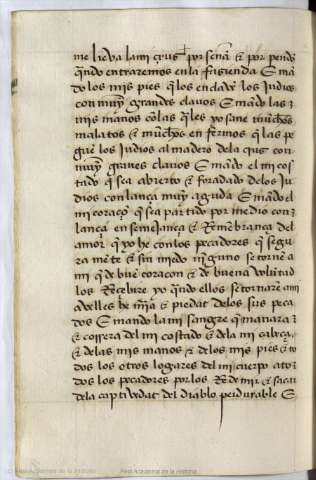 me lieva la mi cruz por señal & por pendon
qndo entraremos en la fasienda E man
do los mis pies q̃ los enclavẽ los Judios
con muy grandes clavos E mando las
mis manos cõ las q̃les yo sane muchos
malatos & muchos enfermos q̃ las pe
guẽ los Judios al madero dela crus con
muy graves clavos E mando el mi cos
tado q̃ sea abierto & foradado delos Ju
dios con lança muy aguda E mando el
mi coraçõ q̃ sea partido por medio con
lança en semejança & Remenbrança del
amor q̃ yo he con los pecadores q̃ segu
ra mẽte & sin miedo ninguno se torne a
mi q̃ de buẽ coracon & de buena volũtad
los Recebire yo quando ellos se tornarẽ a mi
a dellos he mj̃a & piedat delos sus peca
dos E mando la mi sangre q̃ manara
& correra del mi costado & dela mi cabeça
& delas mis manos & delos mis pies & to
dos los otros logares del mi cuerpo a to
dos los pecadores por los Redemir & sacar
dela captividat del diablo perdurable E
Real Academia de la Historia